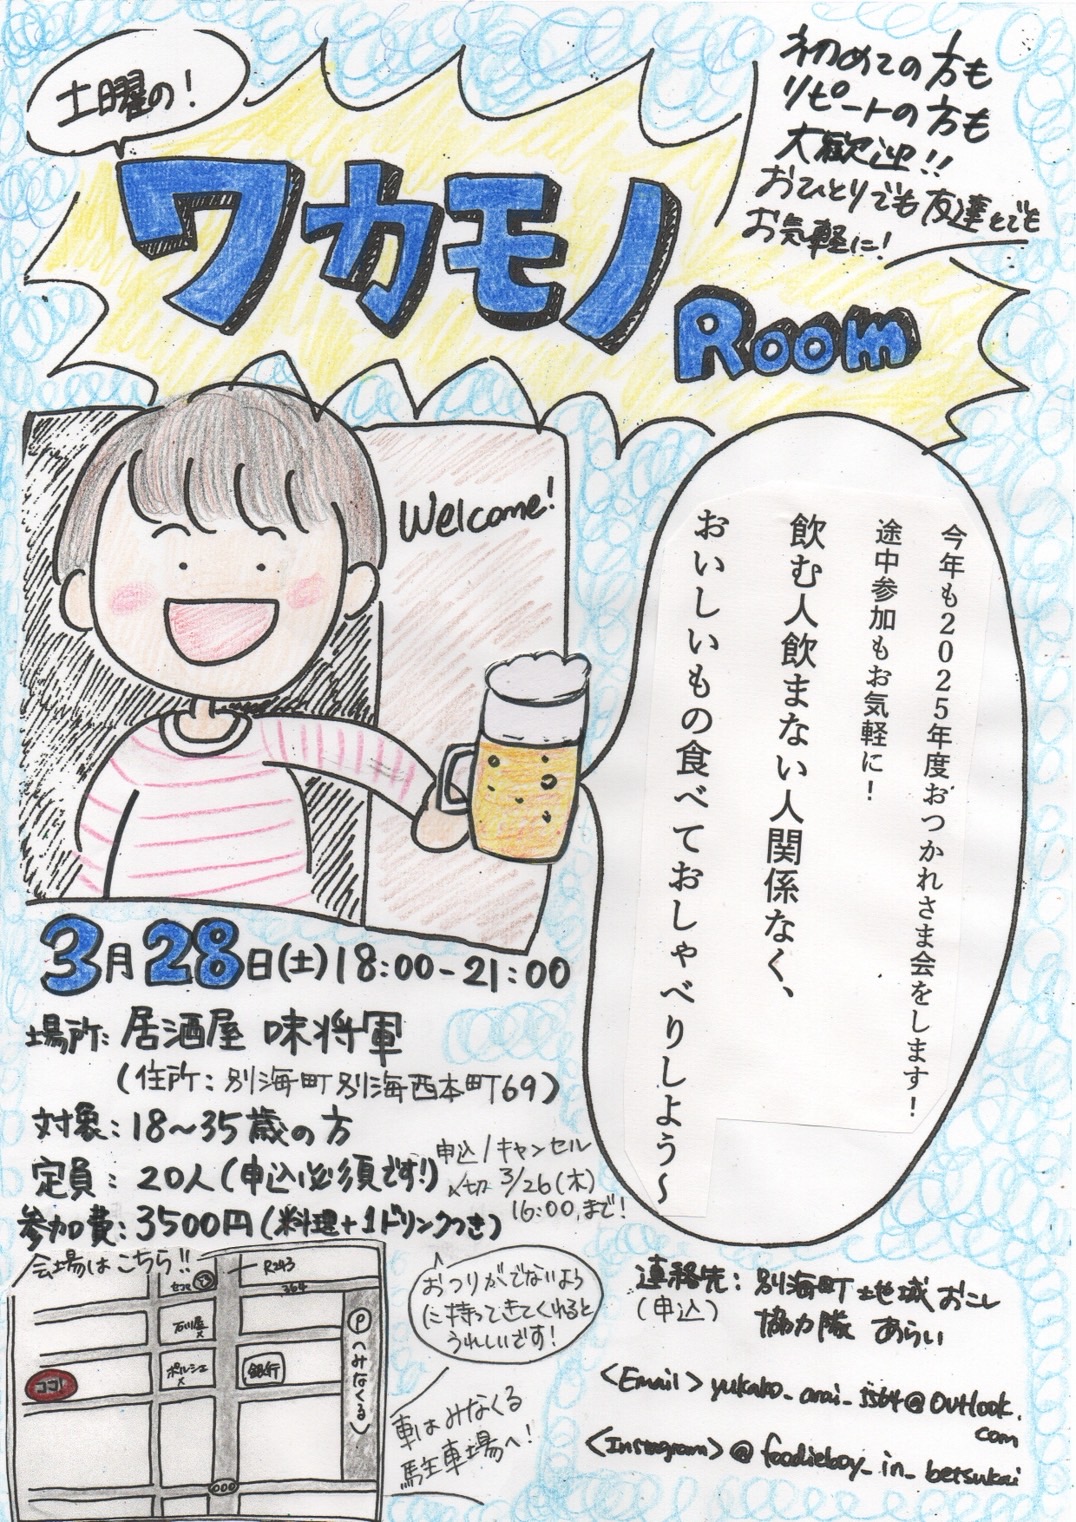 土曜の!
ワカモノ
Room
初めての方も
リピートの方も
大歓迎!!
おひとりでも友達とでも
お気軽に!
Welcome!
今年も2025年度おつかれさま会をします!
途中参加もお気軽に!
飲む人飲まない人関係なく、
おいしいもの食べておしゃべりしよう~
3月28日(土)18:00-21:00
場所: 居酒屋 味将軍
(住所:別海町別海西本町69)
対象:18~35歳の方
定員: 20人(申込必須です!!)
申込/キャンセル
〆切 3/26(木)
16:00まで!
参加費:3500円(料理+1ドリンクつき)
会場はこちら!!
R243
364
セコマ
石川屋
ポルシェ
銀行
ココ!
P(みなくる)
おつりがでないよう
に持ってきてくれると
うれしいです!
車はみなくる
駐車場へ!
連絡先: 別海町地域おこし
(申込) 協力隊 あらい
<Email> yukako_arai_5564@outlook.
com
<Instagram> @foodieboy_in_betsukai